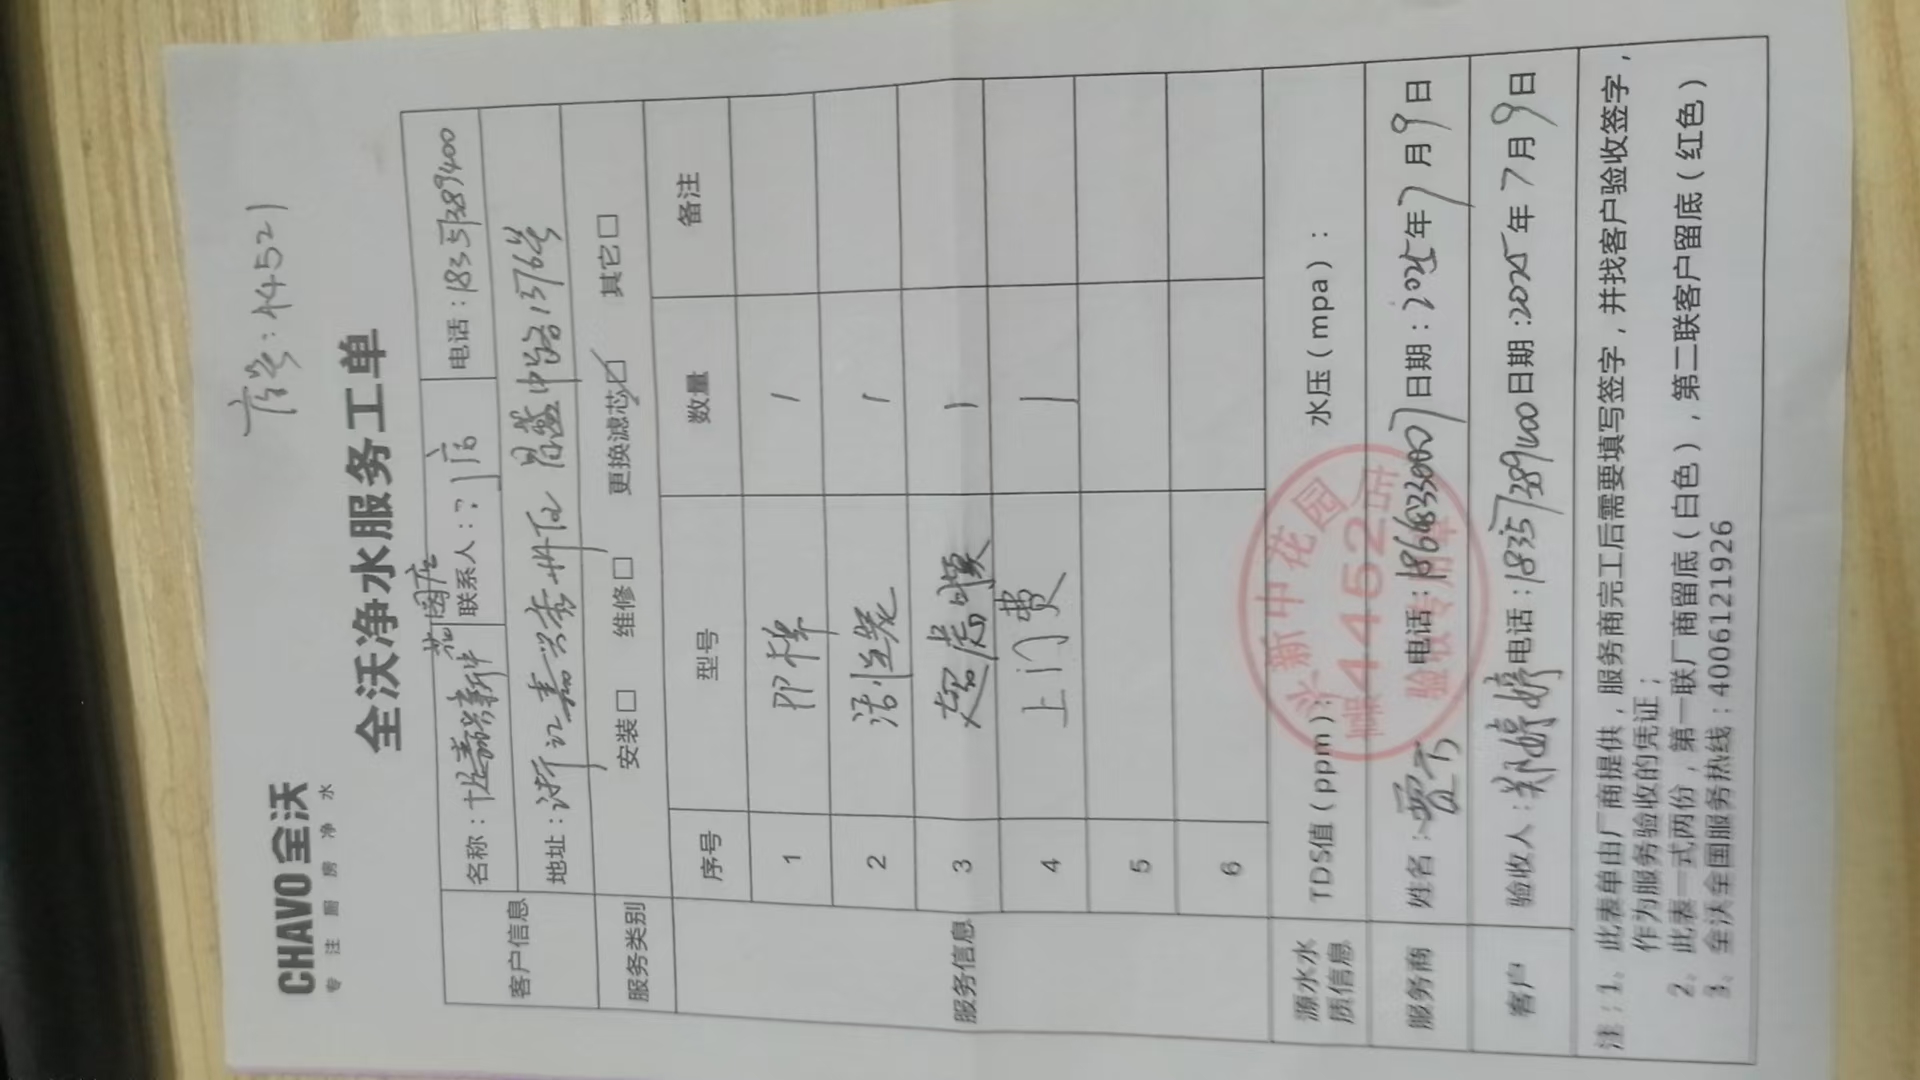 店号:44521
CHAVO 全沃
专注厨房净水
全沃净水服务工单
客户信息
名称: 嘉兴新中花园店 联系人: 店 电话:18357389400
地址:浙江嘉兴秀州区昌盛中路1376号
服务类别 安装□ 维修□ 更换滤芯☑ 其它□
服务信息
序号 型号 数量 备注
1 PP棒 1
2 活性炭 1
3 超虑膜 1
4 上门费 1
5
6
源水水质信息 TDS值(ppm): 水压(mpa):
服务商 姓名:贾 电话: 日期:2025年7月9日
客户 验收人:郑婷婷 电话:18357389400 日期:2025年7月9日
新中花园店
44521
验收专用章
注:1、此表单由厂商提供,服务商完工后需要填写签字,并找客户验收签字,
作为服务验收的凭证;
2、此表一式两份,第一联厂商留底(白色),第二联客户留底(红色)
3、全沃全国服务热线:4006121926